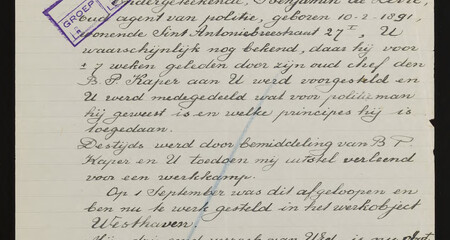 GROEP
ondergeteekende, Benjamin de
oud agent van politie, geboren 10-2-1891,
wonende Sint Antoniebreestraat 27 I, U
waarschijnlijk nog bekend, daar hij voor
± 7 weken geleden door zijn oud chef den
B. P. Kaper aan U werd voorgesteld en
U werd medegedeeld wat voor politieman
hij geweest is en welke principes hij is
toegedaan.
Destijds werd door bemiddeling van B. P.
Kaper en U toedoen mij uitstel verleend
voor een werkkamp.
Op 1 September was dit afgeloopen en
ben nu te werk gesteld in het werkobject
Westhaven.
is nu